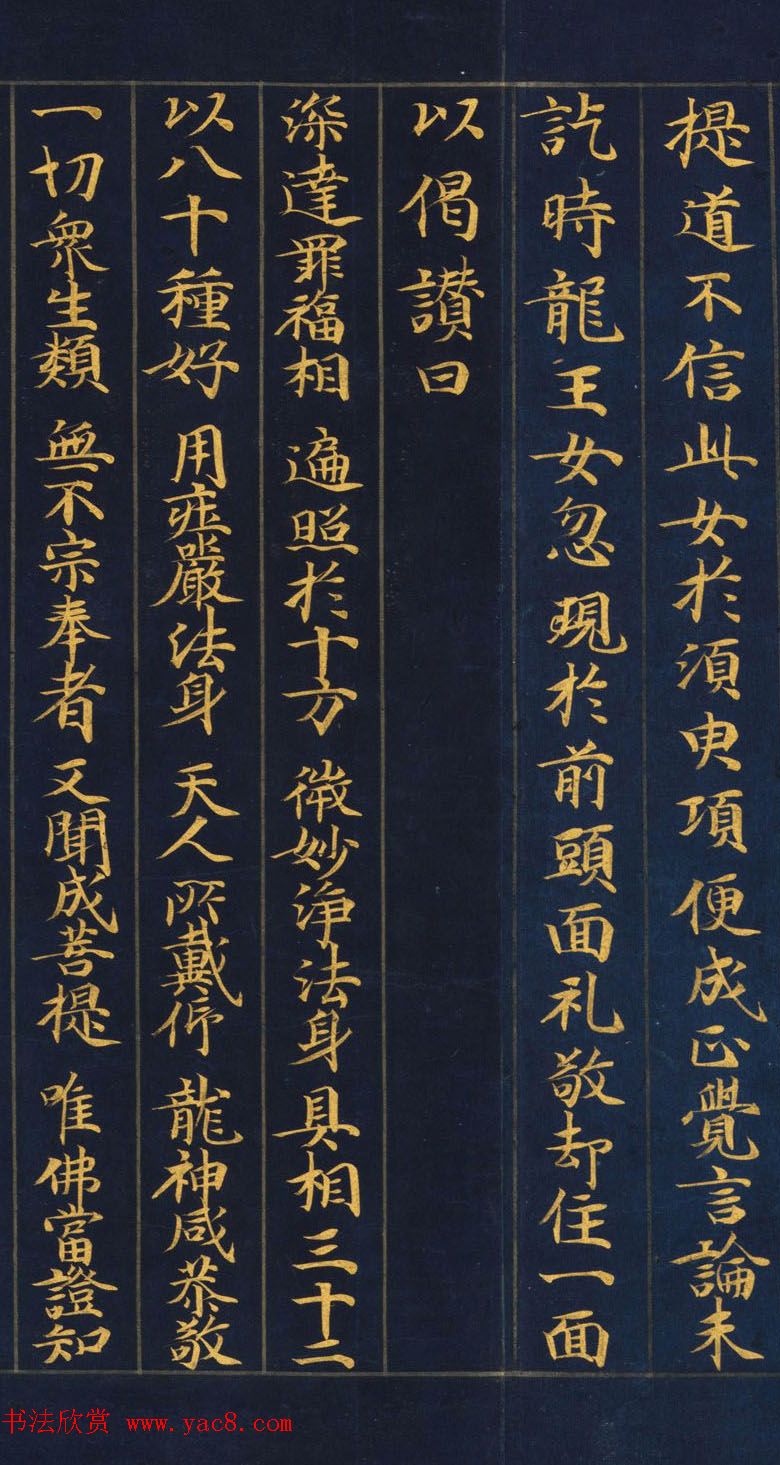 提道不信此女於須臾頃便成正覺言論未
訖時龍王女忽現於前頭面礼敬却住一面
以偈讃曰
深達罪福相 遍照於十方 微妙淨法身 具相三十二
以八十種好 用莊嚴法身 天人所戴仰 龍神咸恭敬
一切衆生類 無不宗奉者 又聞成菩提 唯佛當證知
书法欣赏 www.yac8.com